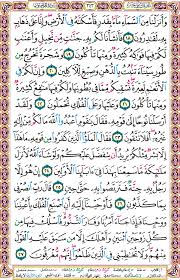 وَأَنزَلْنَا مِنَ السَّمَاءِ مَاءً بِقَدَرٍ فَأَسْكَنَّاهُ فِي الْأَرْضِ وَإِنَّا عَلَىٰ ذَهَابٍ
بِهِ لَقَادِرُونَ ١٨ فَأَنشَأْنَا لَكُم بِهِ جَنَّاتٍ مِّن نَّخِيلٍ وَأَعْنَابٍ
لَّكُمْ فِيهَا فَوَاكِهُ كَثِيرَةٌ وَمِنْهَا تَأْكُلُونَ ١٩ وَشَجَرَةً تَخْرُجُ مِن
طُورِ سَيْنَاءَ تَنبُتُ بِالدُّهْنِ وَصِبْغٍ لِّلْآكِلِينَ ٢٠ وَإِنَّ لَكُمْ فِي
الْأَنْعَامِ لَعِبْرَةً نُّسْقِيكُم مِّمَّا فِي بُطُونِهَا وَلَكُمْ فِيهَا مَنَافِعُ كَثِيرَةٌ
وَمِنْهَا تَأْكُلُونَ ٢١ وَعَلَيْهَا وَعَلَى الْفُلْكِ تُحْمَلُونَ ٢٢ وَلَقَدْ
أَرْسَلْنَا نُوحًا إِلَىٰ قَوْمِهِ فَقَالَ يَا قَوْمِ اعْبُدُوا اللَّهَ مَا لَكُم مِّنْ إِلَٰهٍ
غَيْرُهُ أَفَلَا تَتَّقُونَ ٢٣ فَقَالَ الْمَلَأُ الَّذِينَ كَفَرُوا مِن قَوْمِهِ
مَا هَٰذَا إِلَّا بَشَرٌ مِّثْلُكُمْ يُرِيدُ أَن يَتَفَضَّلَ عَلَيْكُمْ وَلَوْ شَاءَ اللَّهُ
لَأَنزَلَ مَلَائِكَةً مَّا سَمِعْنَا بِهَٰذَا فِي آبَائِنَا الْأَوَّلِينَ ٢٤ إِنْ هُوَ
إِلَّا رَجُلٌ بِهِ جِنَّةٌ فَتَرَبَّصُوا بِهِ حَتَّىٰ حِينٍ ٢٥ قَالَ رَبِّ انصُرْنِي
بِمَا كَذَّبُونِ ٢٦ فَأَوْحَيْنَا إِلَيْهِ أَنِ اصْنَعِ الْفُلْكَ بِأَعْيُنِنَا
وَوَحْيِنَا فَإِذَا جَاءَ أَمْرُنَا وَفَارَ التَّنُّورُ فَاسْلُكْ فِيهَا مِن كُلٍّ
زَوْجَيْنِ اثْنَيْنِ وَأَهْلَكَ إِلَّا مَن سَبَقَ عَلَيْهِ الْقَوْلُ
مِنْهُمْ وَلَا تُخَاطِبْنِي فِي الَّذِينَ ظَلَمُوا إِنَّهُم مُّغْرَقُونَ ٢٧